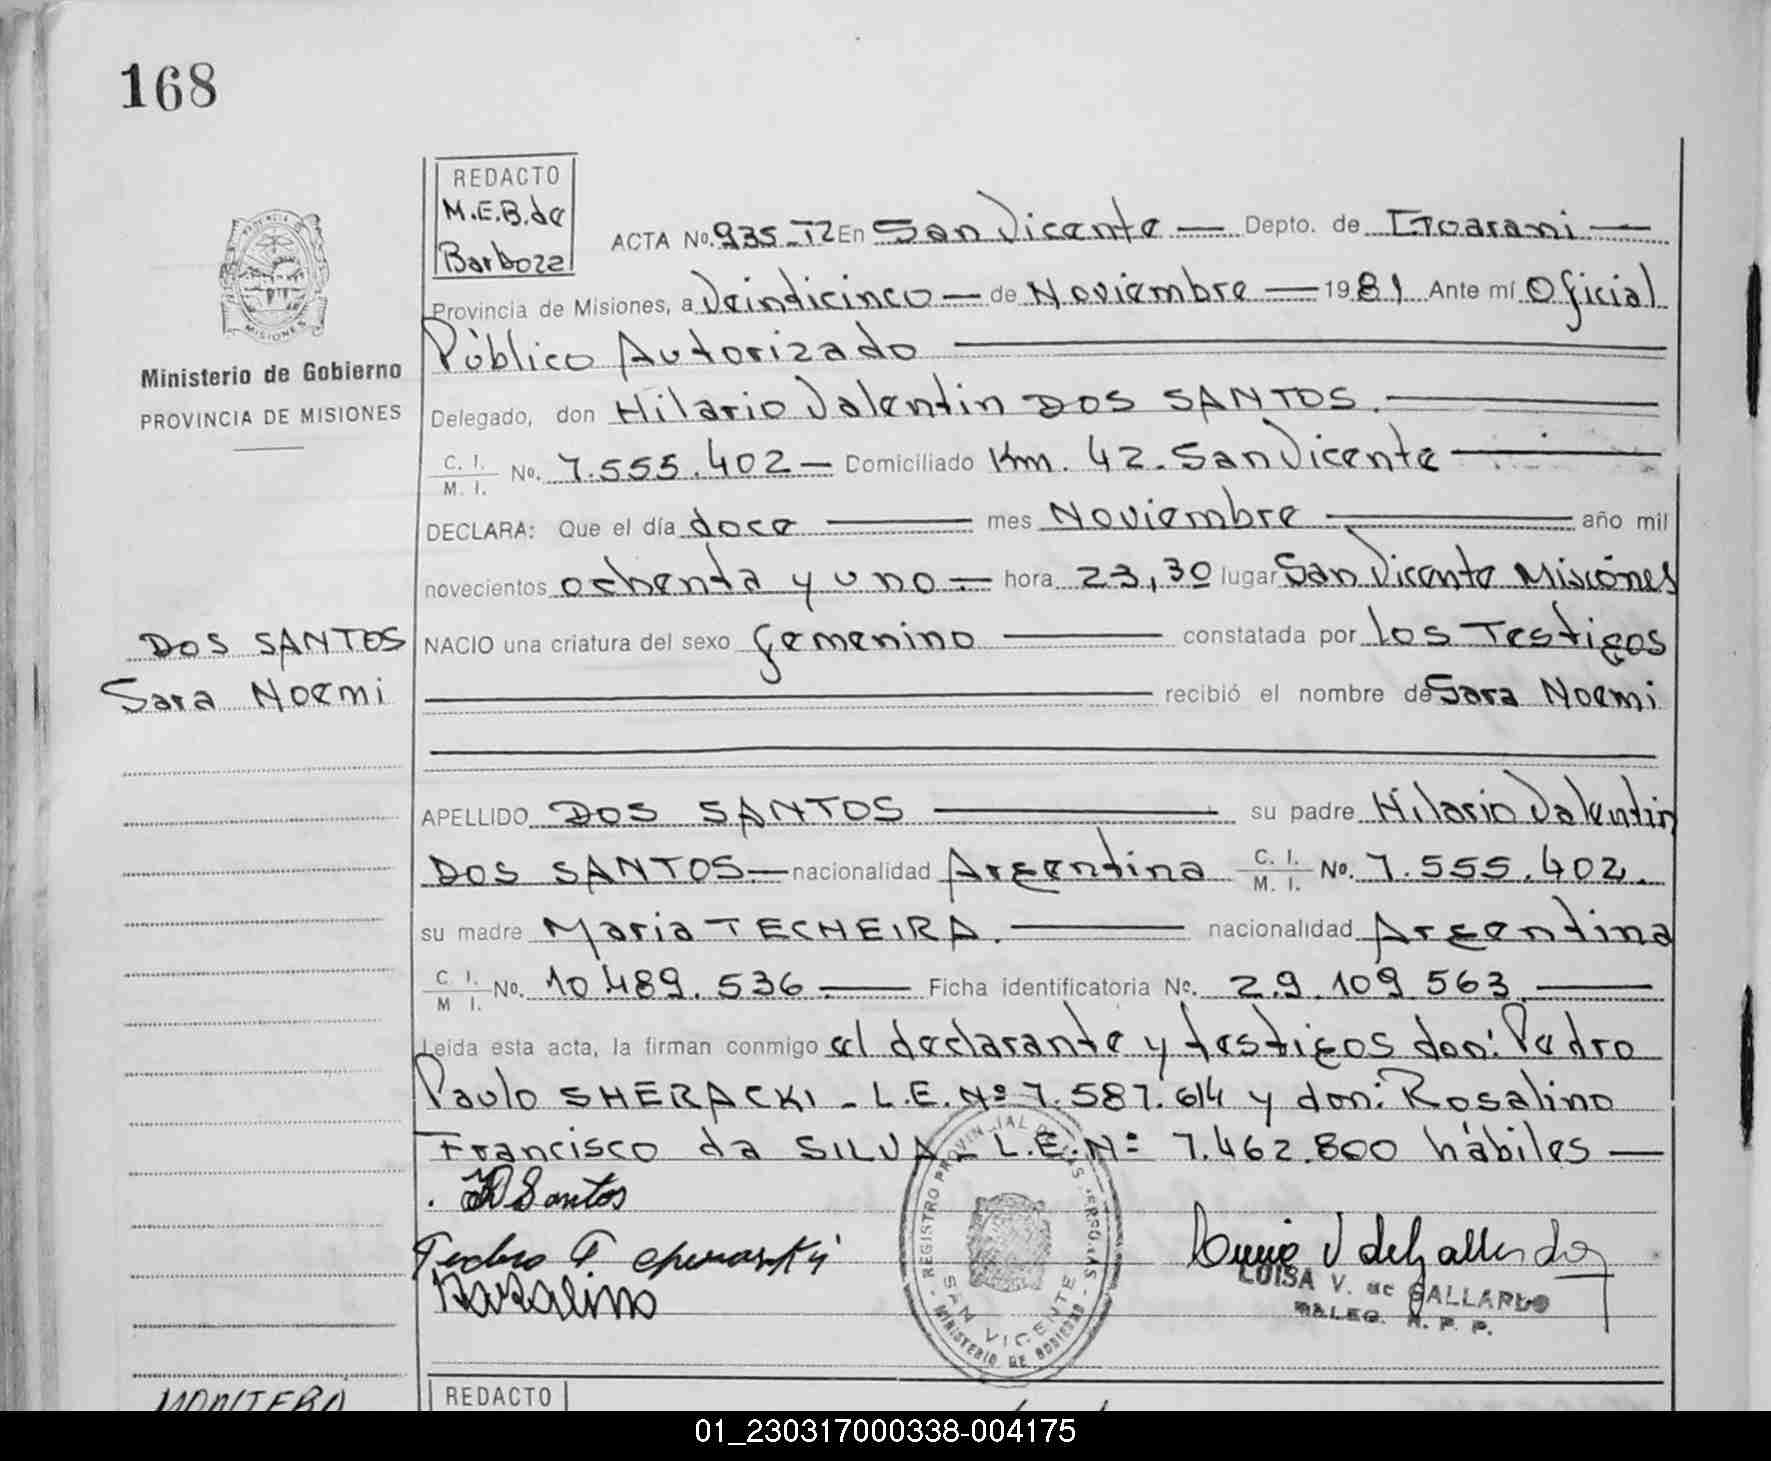 168
REDACTO
M.E.B. de
Barboza
PROVINCIA DE
MISIONES
Ministerio de Gobierno
PROVINCIA DE MISIONES
DOS SANTOS
Sara Noemi
ACTA No. 935-T2 En San Vicente — Depto. de Guarani —
Provincia de Misiones, a Veindicinco — de Noviembre — 1981 Ante mí Oficial
Público Autorizado
Delegado, don Hilario Valentin DOS SANTOS.
C. I. / M. I. No. 7.555.402 — Domiciliado Km. 42. San Vicente
DECLARA: Que el día doce mes Noviembre año mil
novecientos ochenta y uno — hora 23,30 lugar San Vicente Misiones
NACIO una criatura del sexo femenino constatada por los Testigos
recibió el nombre de Sara Noemi
APELLIDO DOS SANTOS su padre Hilario Valentin
DOS SANTOS — nacionalidad Argentina C. I. / M. I. No. 7.555.402.
su madre Maria TECHEIRA. nacionalidad Argentina
C. I. / M I. No. 10.489.536. Ficha identificatoria No. 29.109.563.
Leída esta acta, la firman conmigo el declarante y testigos don: Pedro
Paulo SHERACKI - L.E. Nº 7.587.614 y don: Rosalino
Francisco da SILVA - L.E. Nº 7.462.800 hábiles —
H D Santos
Rosalino
REGISTRO PROVINCIAL DE LAS PERSONAS
SAN VICENTE
- MINISTERIO DE GOBIERNO -
LUISA V. de GALLARDO
DALEG. R. P. P.
MONTERO
REDACTO
01_230317000338-004175